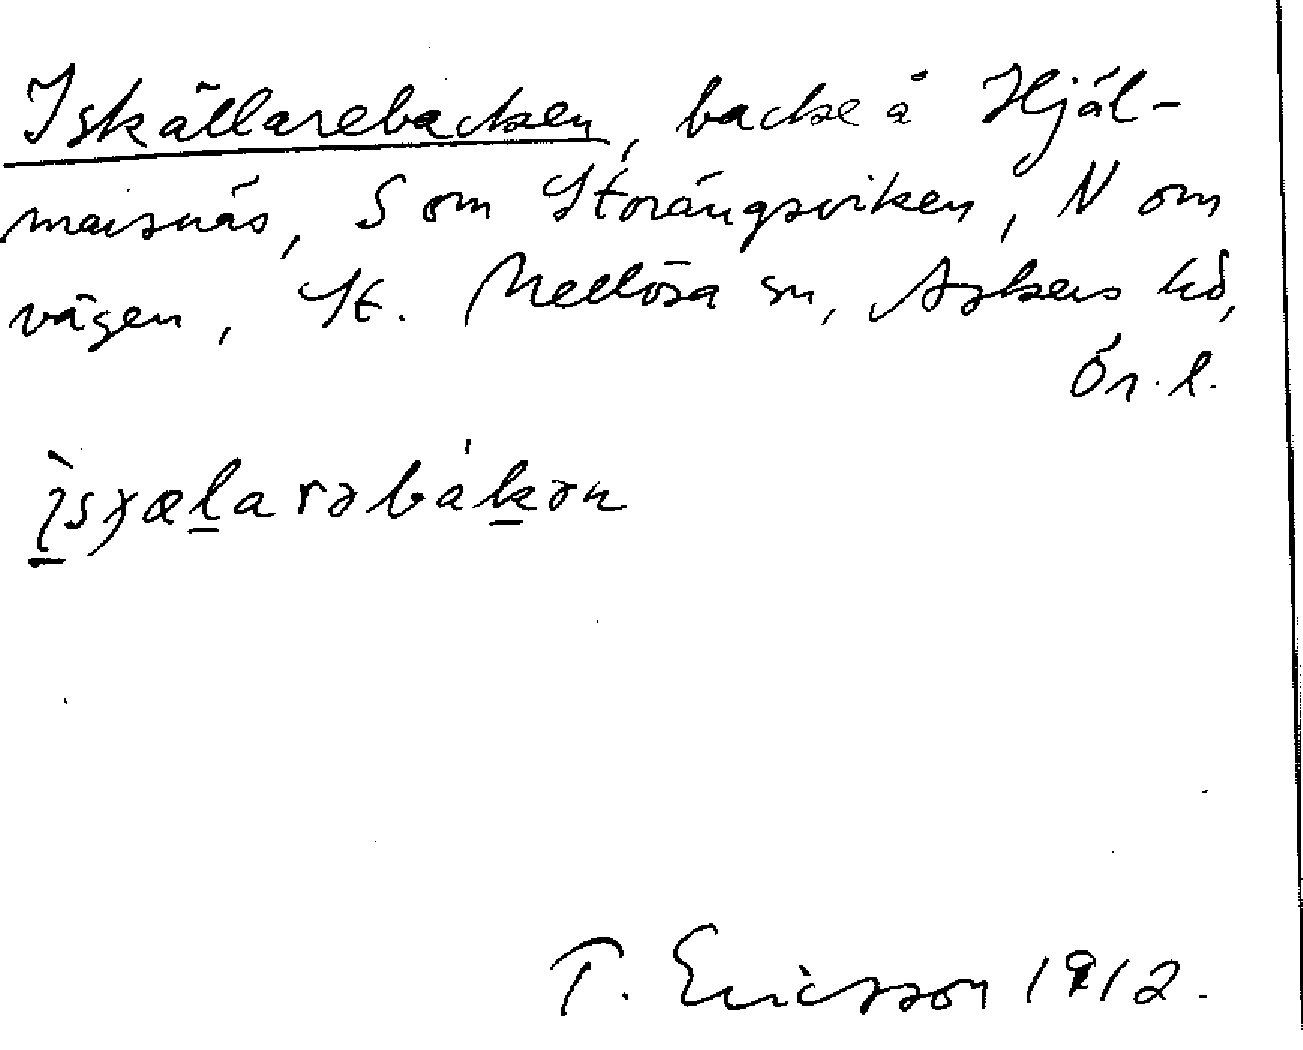 Iskällarebacken, backe å Hjäl-
marsnäs, S om Storängsviken, N om
vägen, St. Mellösa sn, Askers hd,
Ör. l.
ìsχæḻarəbáḵən
T. Ericsson 1912.